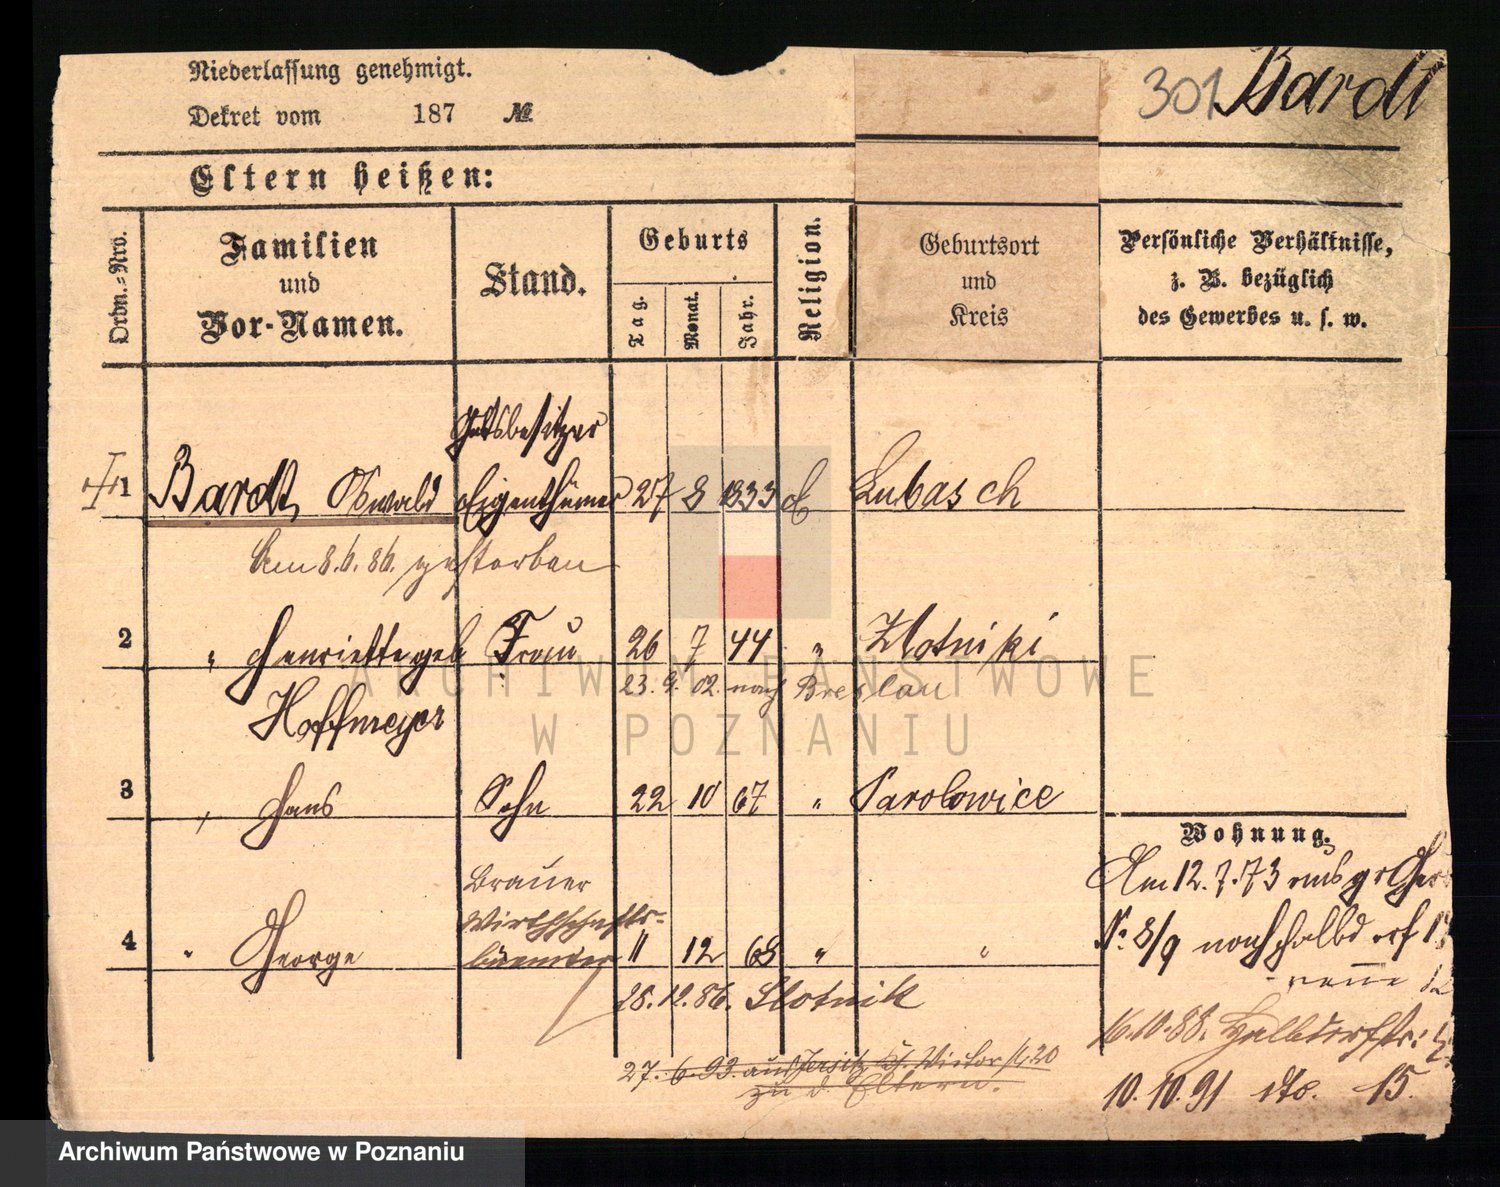 Niederlassung genehmigt.
301 Bardt
Dekret vom 187 №
Eltern heißen:
Ordn.-Nro.
Familien
und
Vor-Namen.
Stand.
Geburts
Tag.
Monat.
Jahr.
Religion.
Geburtsort
und
Kreis
Persönliche Verhältnisse,
z. B. bezüglich
des Gewerbes u. s. w.
Gutsbesitzer
1 Bardt, Oswald Eigenthümer 27 8 1833 Lubasch
Am 8.6.86. gestorben
2 " Henriette geb Frau 26 7 44 " Zlotniki
23. 9. 02. nach Breslau
Hoffmeyer
3 " Hans Sohn 22 10 67 " Parolowice
Wohnung.
Am 12.7.73 aus gr Ger
No 8/9 nach Halbd
Brauer
Wirthschafts-
4 " George beamter 11 12 68 " "
28.12.86. Slotnik
16.10.88. Halbdorfstr:
27. 6. 93. aus Jersitz Victor 20
zu d. Eltern.
10.10.91 dto. 15.
ARCHIWUM PAŃSTWOWE
W POZNANIU
Archiwum Państwowe w Poznaniu